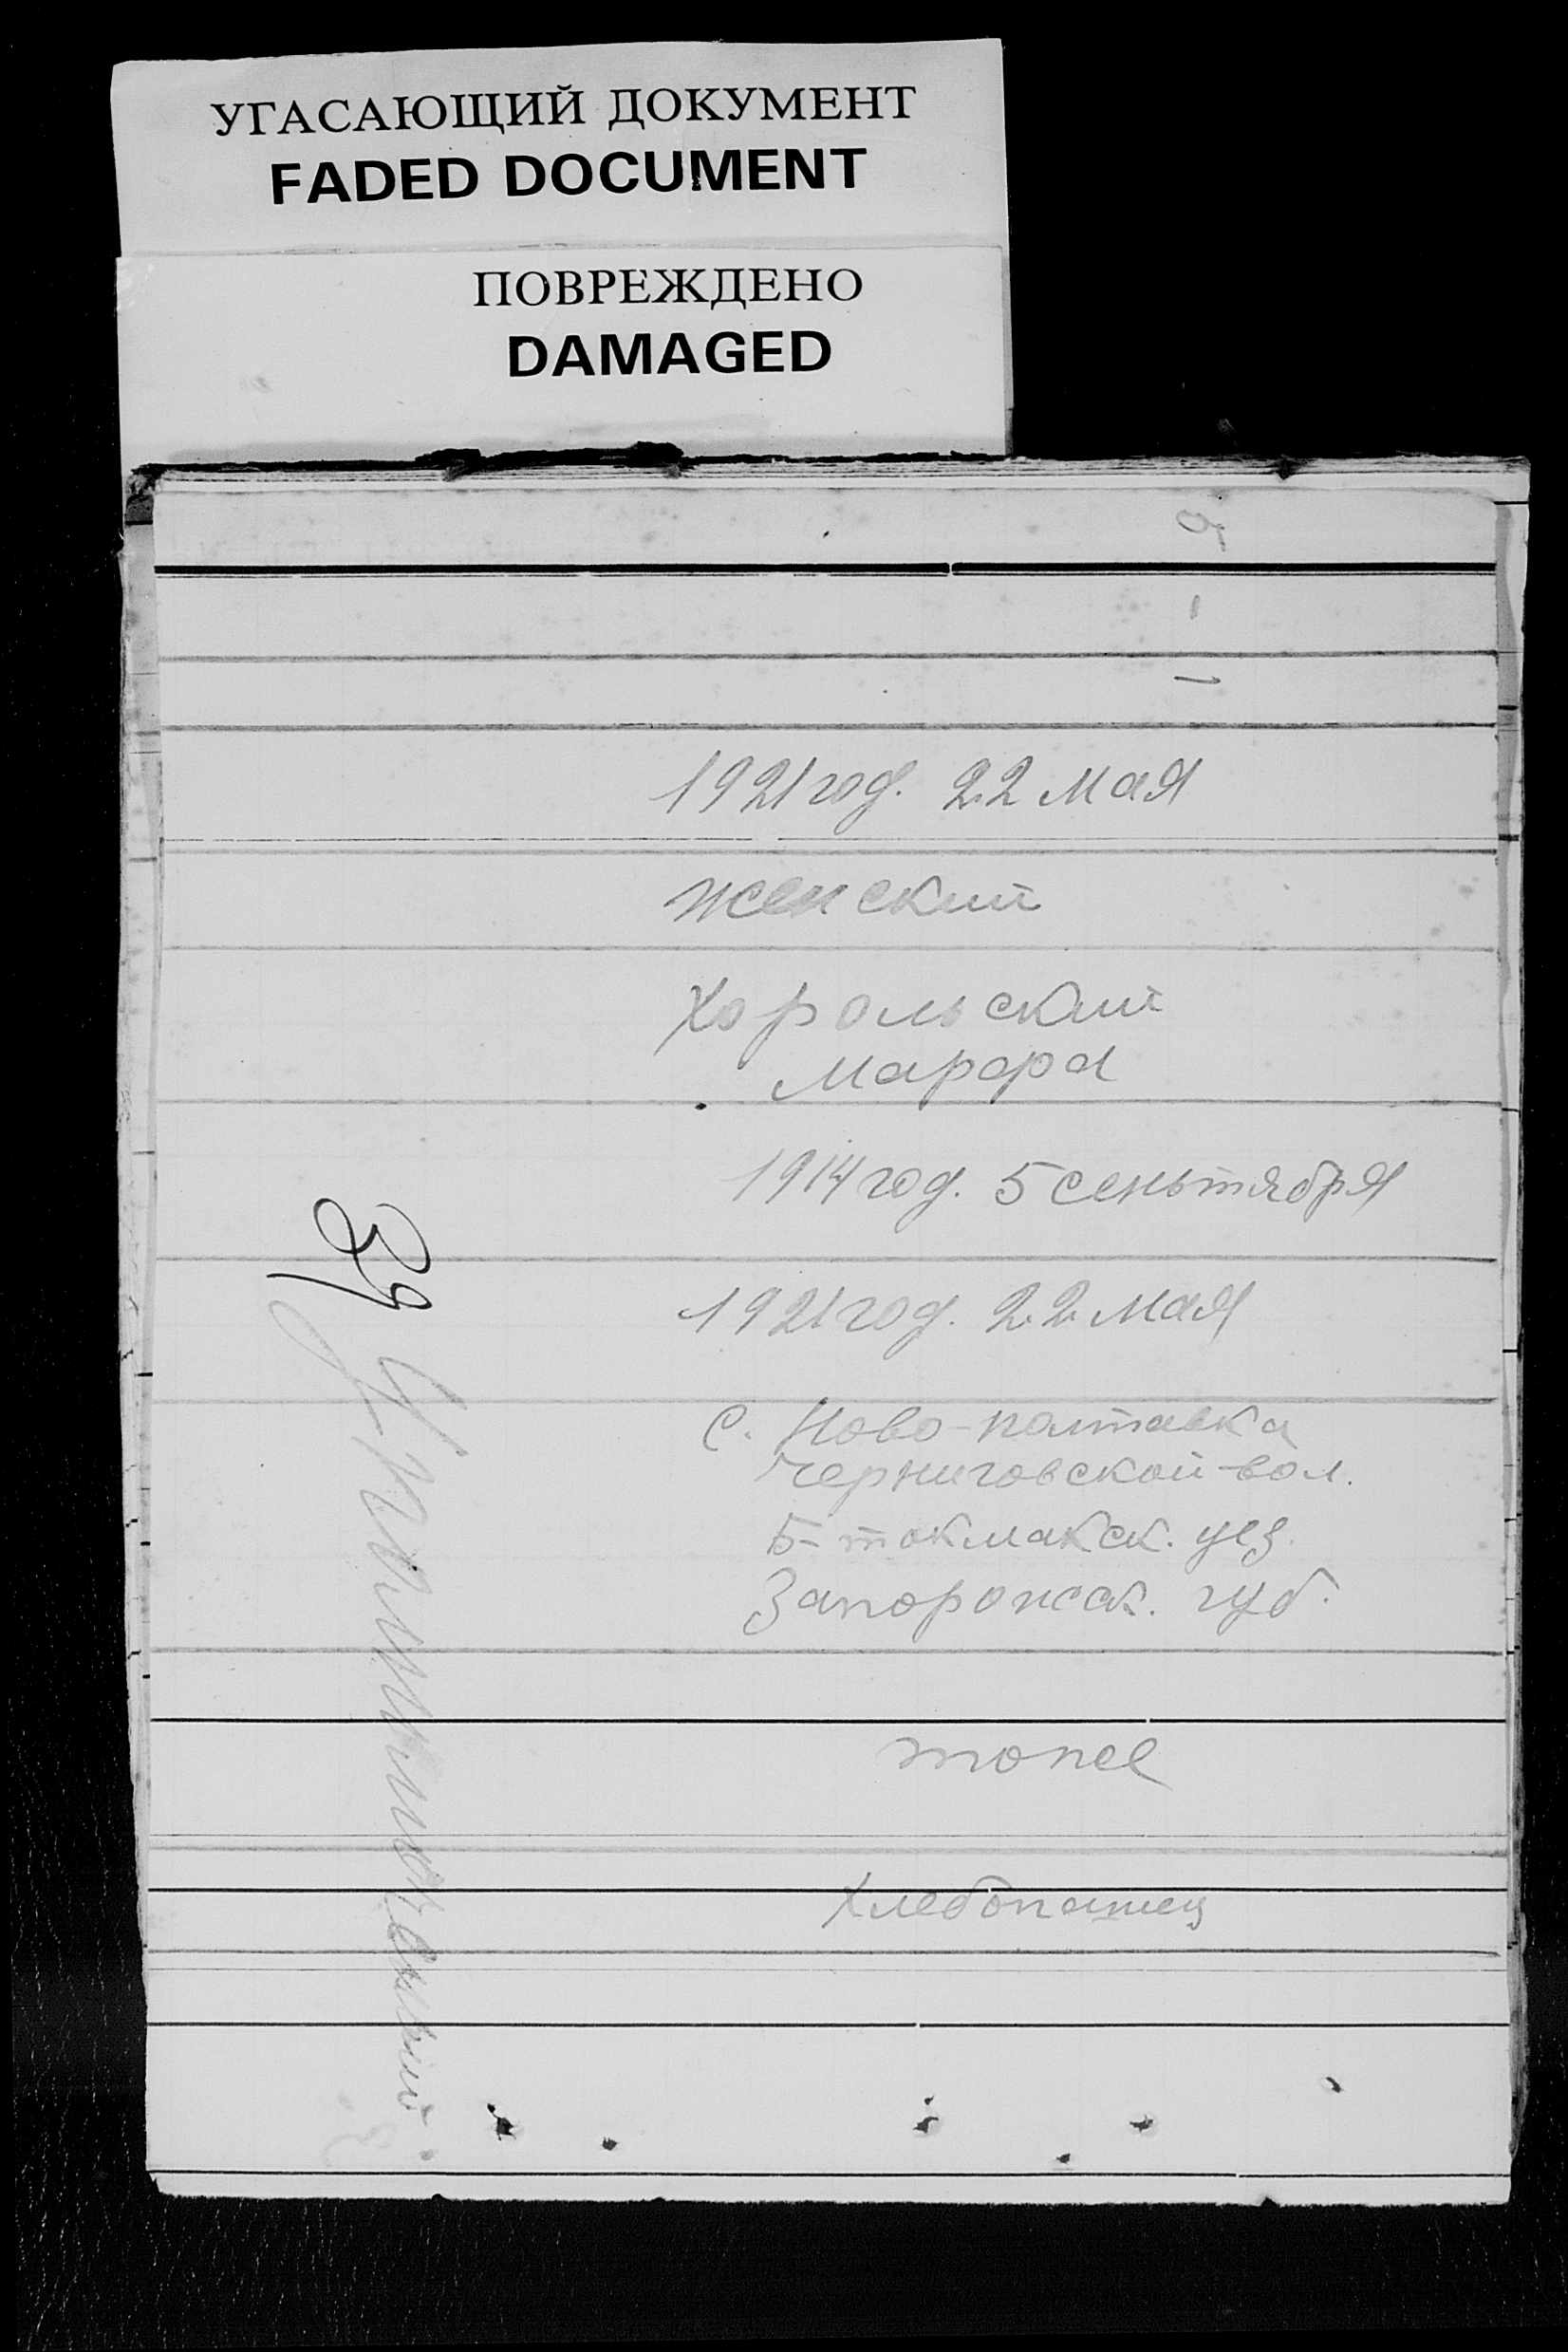 УГАСАЮЩИЙ ДОКУМЕНТ
FADED DOCUMENT
ПОВРЕЖДЕНО
DAMAGED
1921 год. 22 мая
женский
Хорольский
Марфа
1914 год. 5 сеньтября
1921 год. 22 мая
с. Ново-полтавка
черниговской-вол.
Б-токмакск. уез.
Запорожск. губ.
тоже
Хлебопашец